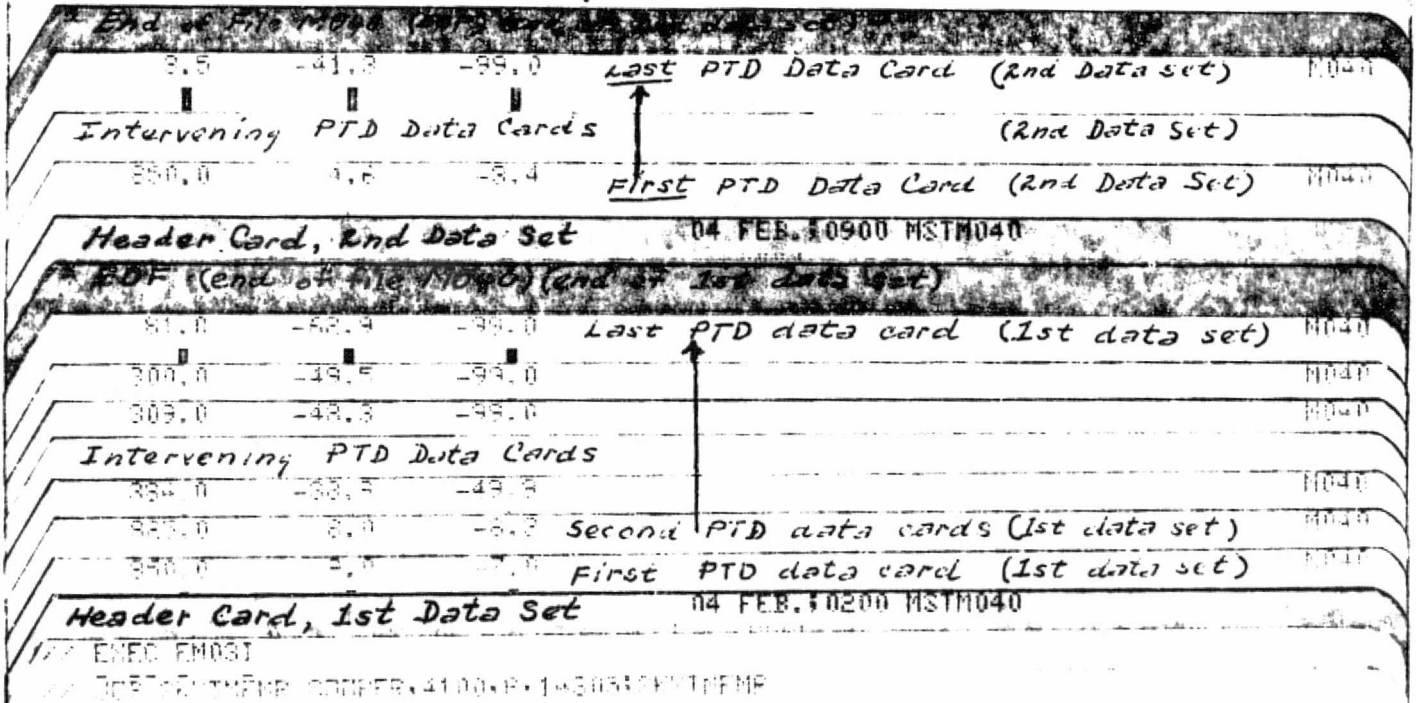 * End of File M040 (EOF) (end of 2nd data set)
9.5 -41.3 -99.0 Last PTD Data Card (2nd Data Set) M040
Intervening PTD Data Cards (2nd Data Set)
850.0 4.6 -3.4 First PTD Data Card (2nd Data Set) M040
Header Card, 2nd Data Set 04 FEB. 0900 MSTM040
* EOF (end of file M040) (end of 1st data set)
61.0 -99.0 Last PTD data card (1st data set) M040
300.0 -49.5 -99.0 M040
309.0 -48.3 -99.0 M040
Intervening PTD Data Cards
-49.9 M040
Second PTD data cards (1st data set) M040
First PTD data card (1st data set) M040
Header Card, 1st Data Set 04 FEB. 0200 MSTM040
// EXEC EM03I
//